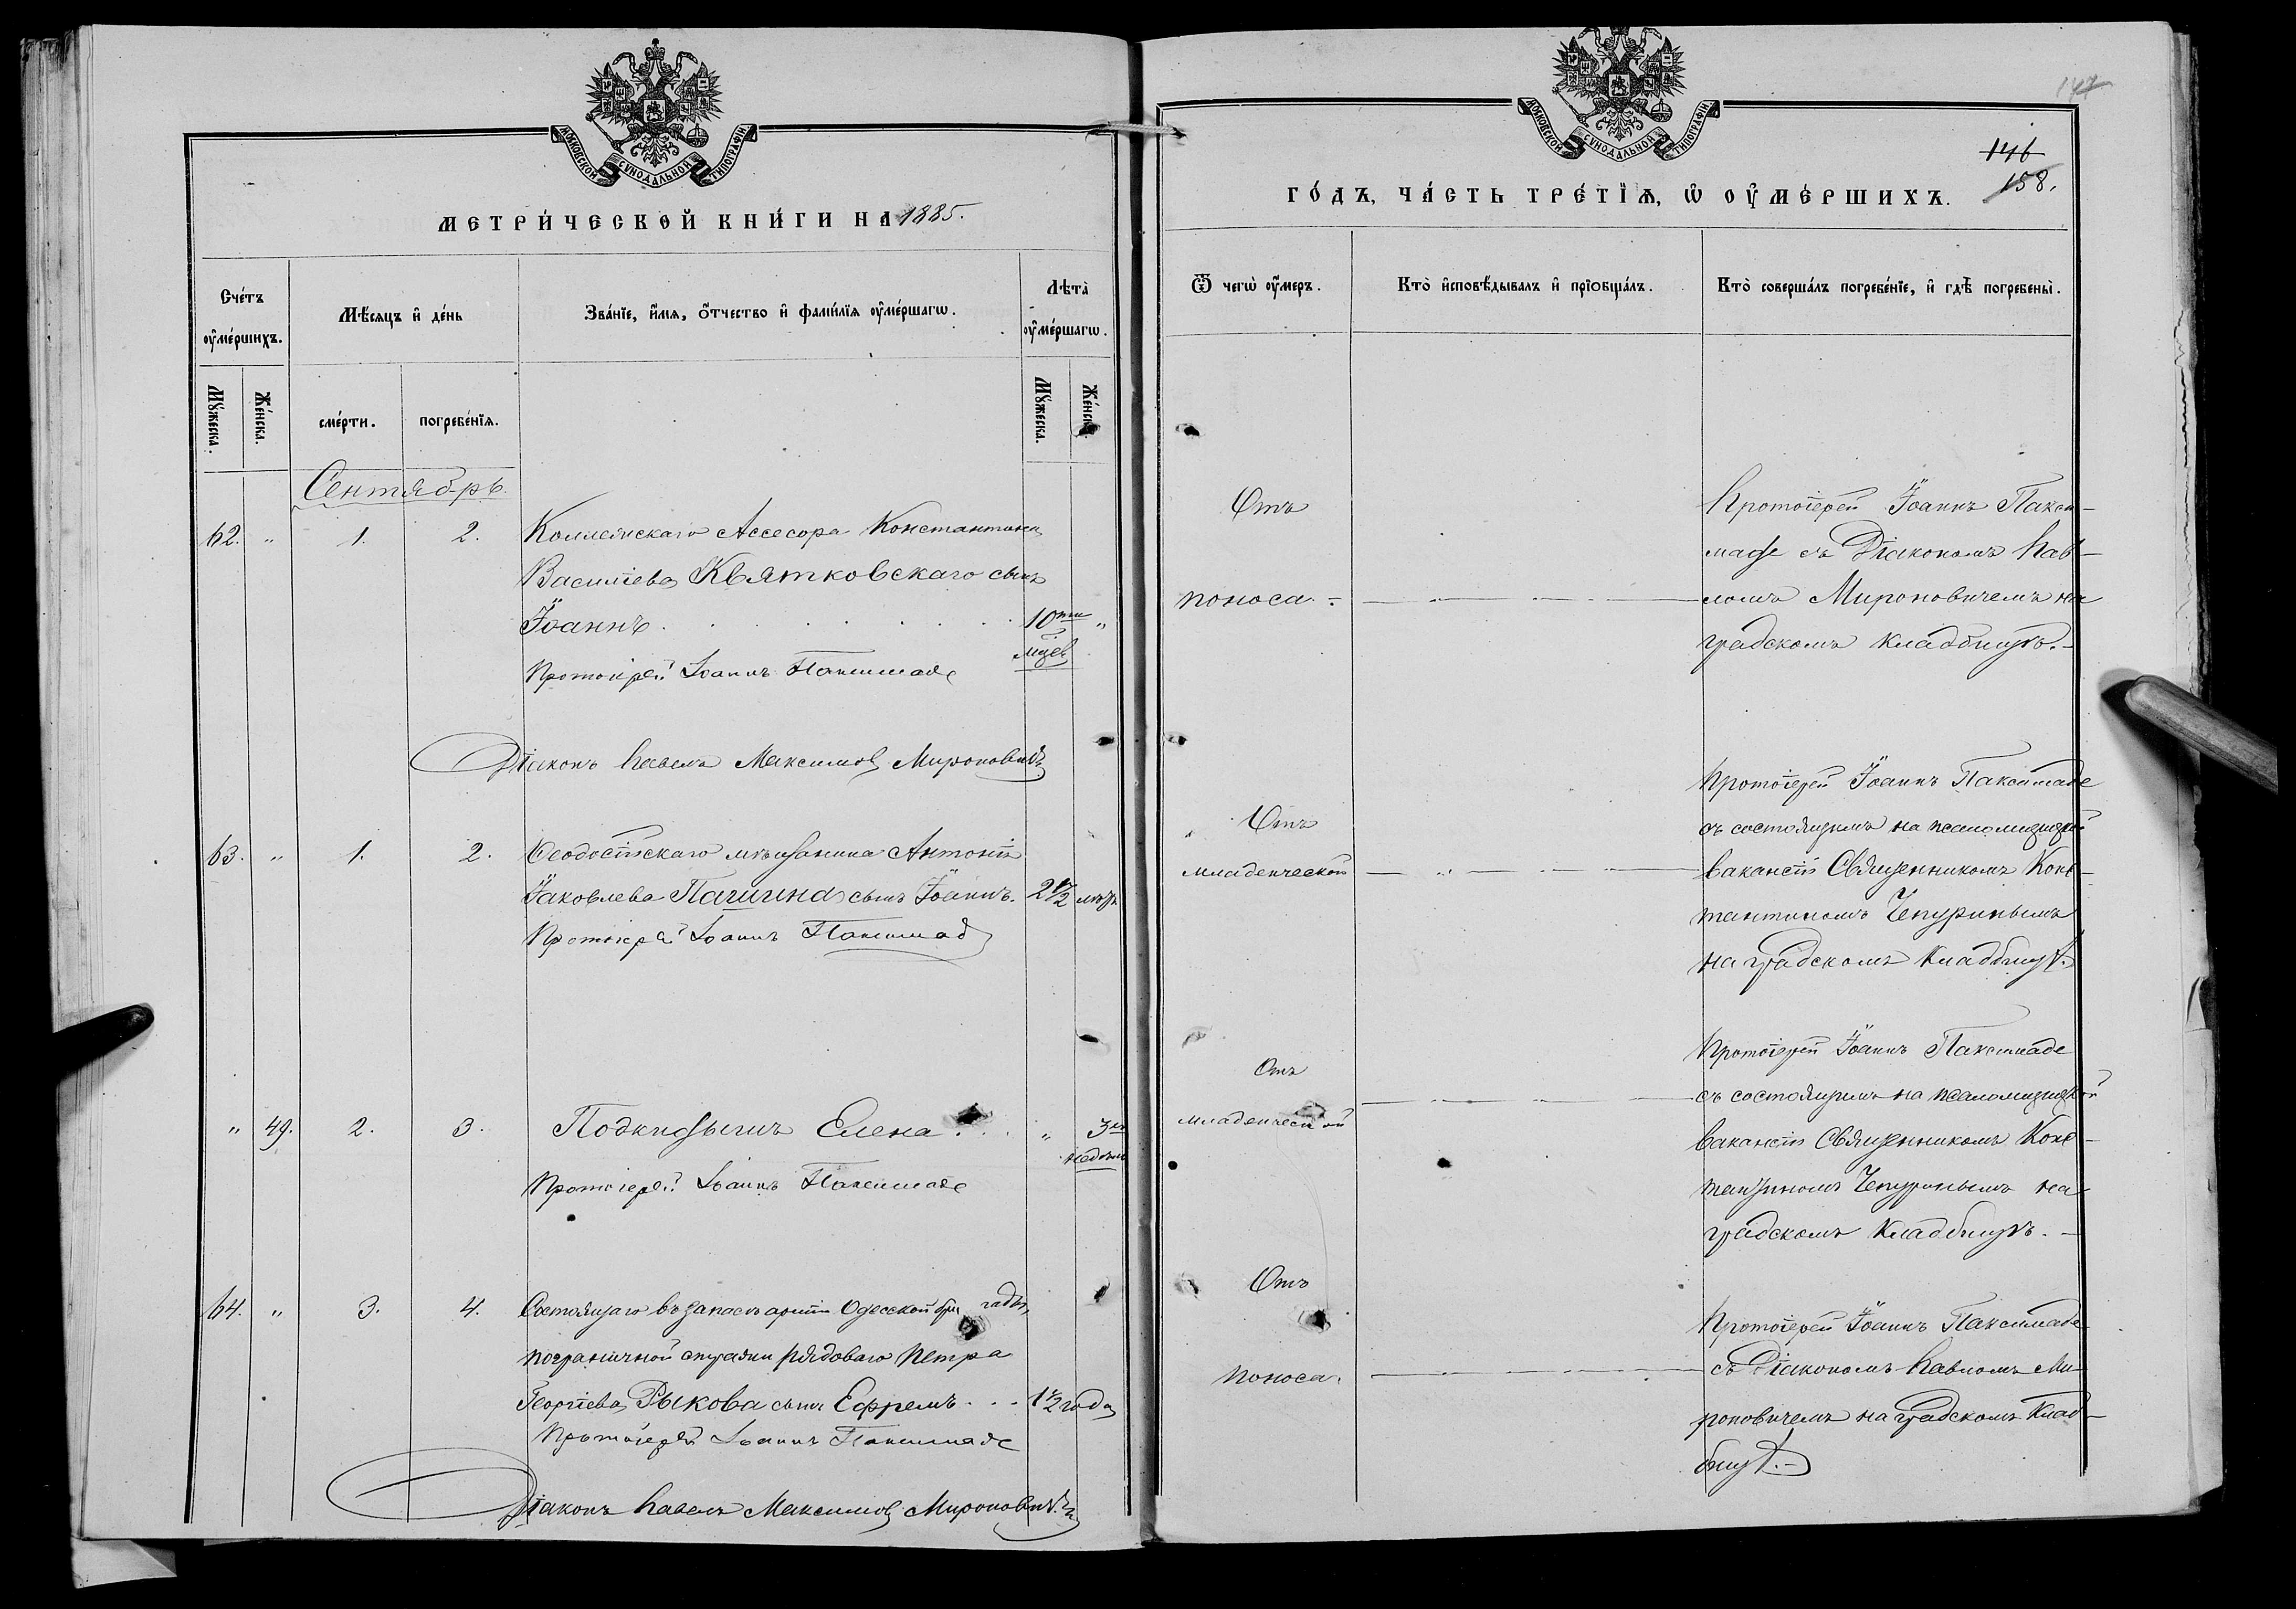 МОСКОВСКОЙ СѴНОДАЛЬНОЙ ТИПОГРАФІИ
МЕТРИ́ЧЕСКОЙ КНИ́ГИ НА 1885.
Сче́тъ ᲂу҆ме́ршихъ.
Мѣ́сяцъ и҆ де́нь
Зва́нїе, и҆́мѧ, ѻ҆́тчество и҆ фами́лїѧ ᲂу҆ме́ршагѡ.
Лѣ́та ᲂу҆ме́ршагѡ.
Мꙋ́жеска.
Же́нска.
сме́рти.
погребе́нїѧ.
Мꙋ́жеска.
Же́нска.
Сентябрь.
62. " 1. 2. Коллежскаго Ассесора Константина
Василіева Квятковскаго сынъ
Іоаннъ . . . . . . . 10ти "
мѣсц.
Протоіерей Іоаннъ Паксимаде
Діаконъ Павелъ Максимовъ Мироновичъ
63. " 1. 2. Ѳеодосійскаго мѣщанина Антонія
Іаковлева Пашина сынъ Іоаннъ. 2 1/2 мѣс.
Протоіерей Іоаннъ Паксимаде
" 49. 2. 3. Подкидышъ Елена . . . " 3хъ
недѣль
Протоіерей Іоаннъ Паксимаде
64. " 3. 4. Состоящаго въ запасѣ арміи Одесской бригады,
пограничной стражи рядоваго Петра
Георгіева Рыкова сынъ Ефремъ . . . 1 1/2 года
Протоіерей Іоаннъ Паксимаде
Діаконъ Павелъ Максимовъ Мироновичъ.
МОСКОВСКОЙ СѴНОДАЛЬНОЙ ТИПОГРАФІИ
147
146
158.
ГО́ДЪ, ЧА́СТЬ ТРЕ́ТЇѦ, Ѡ ОУ҆МЕ́РШИХЪ.
Ѿ чегѡ̀ ᲂу҆́меръ.
Кто̀ и҆сповѣ́дывалъ и҆ прїѡбща́лъ.
Кто̀ соверша́лъ погребе́нїе, и҆ гдѣ̀ погребены̀.
Отъ
поноса.
Протоіерей Іоаннъ Пакси-
маде съ Діакономъ Пав-
ломъ Мироновичемъ на
градскомъ кладбищѣ.
Отъ
младенческой
Протоіерей Іоаннъ Паксимаде
съ состоящимъ на псаломщицкой
вакансіи Священникомъ Конс-
тантиномъ Чепуринымъ
на градскомъ кладбищѣ.
Отъ
младенческой
Протоіерей Іоаннъ Паксимаде
съ состоящимъ на псаломщицкой
вакансіи Священникомъ Конс-
тантиномъ Чепуринымъ на
градскомъ кладбищѣ.
Отъ
поноса.
Протоіерей Іоаннъ Паксимаде
съ Діакономъ Павломъ Ми-
роновичемъ на градскомъ клад-
бищѣ.